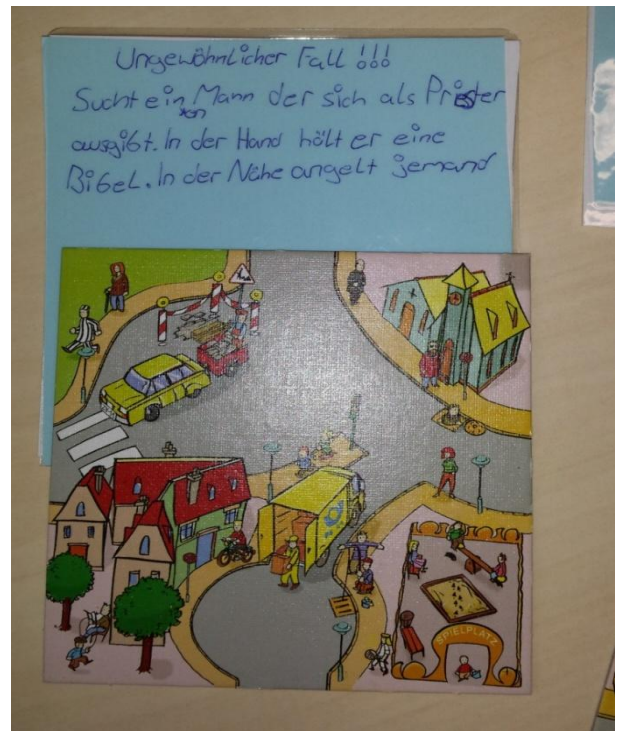 Ungewöhnlicher Fall !!!
Sucht einen Mann der sich als Priester
ausgibt. In der Hand hält er eine
Bibel. In der Nähe angelt jemand
SPIELPLATZ